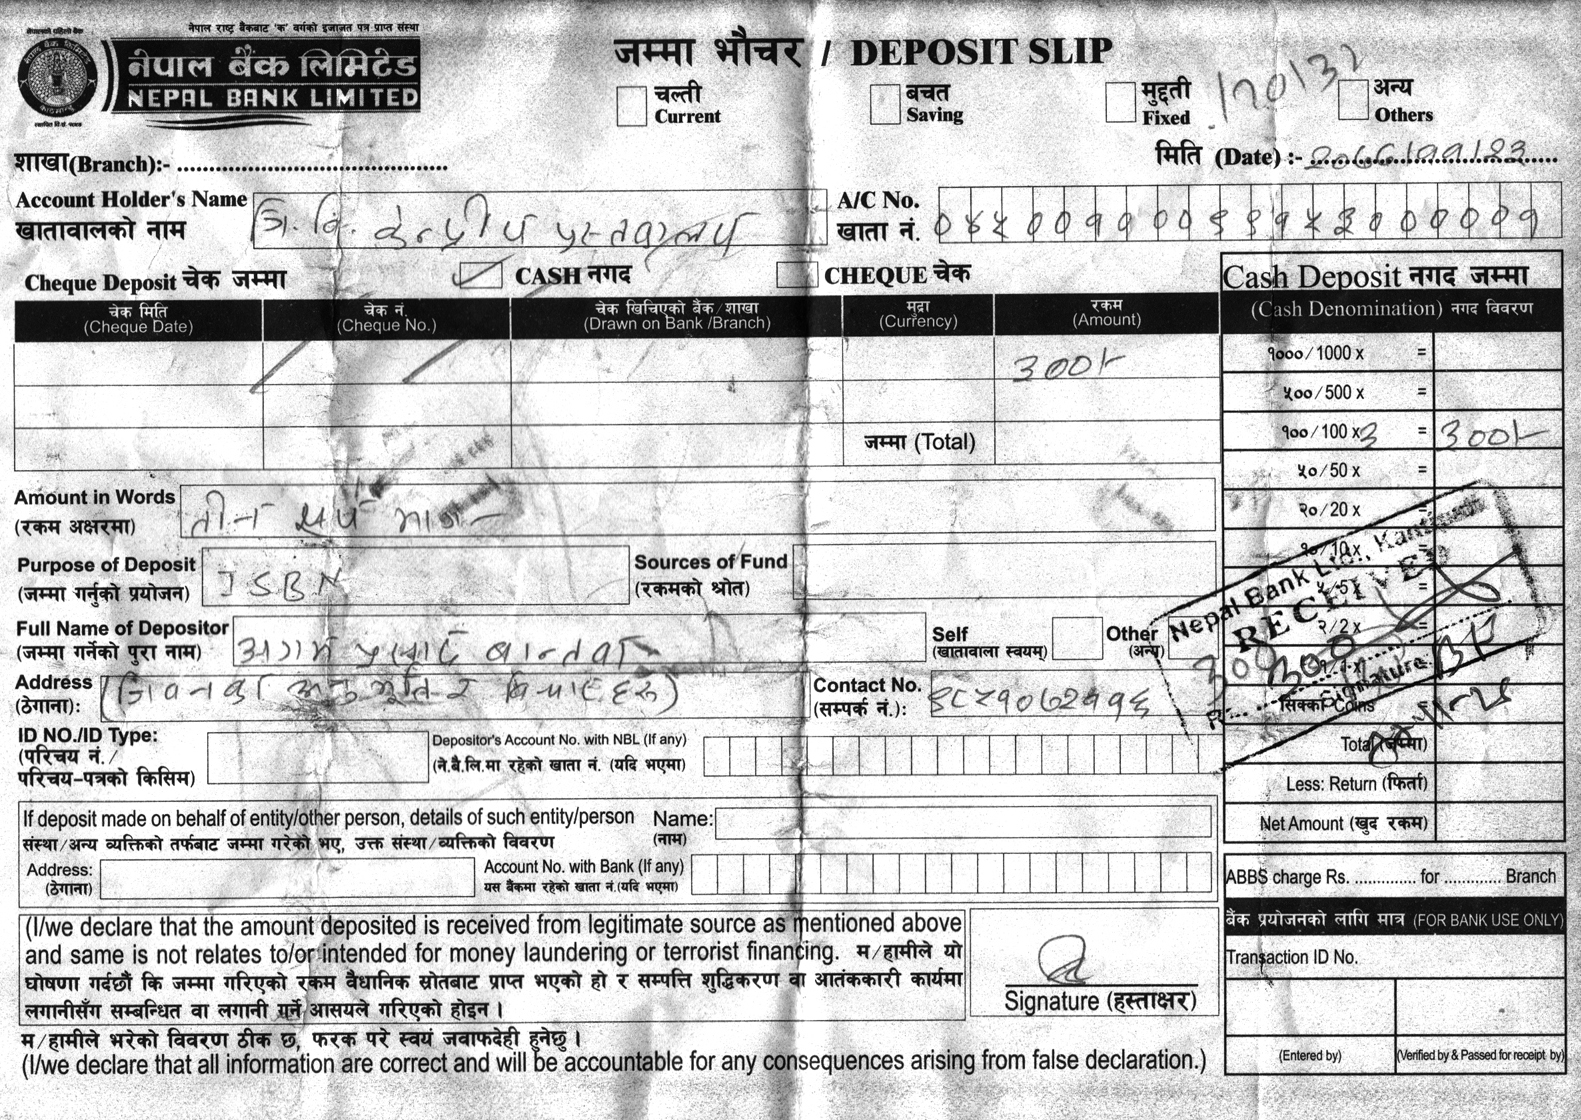 नेपाल राष्ट्र बैंकबाट 'क' वर्गको इजाजत पत्र प्राप्त संस्था
नेपाल बैंक लिमिटेड
NEPAL BANK LIMITED
जम्मा भौचर / DEPOSIT SLIP
चल्ती Current
बचत Saving
मुद्दती Fixed
अन्य Others
शाखा(Branch):-
मिति (Date) :- २०७८/११/२३
Account Holder's Name
खातावालको नाम
त्रि. वि. केन्द्रीय पुस्तकालय
A/C No.
खाता नं.
Cheque Deposit चेक जम्मा
CASH नगद
CHEQUE चेक
चेक मिति (Cheque Date)
चेक नं. (Cheque No.)
चेक खिचिएको बैंक/शाखा (Drawn on Bank /Branch)
मुद्रा (Currency)
रकम (Amount)
300/-
जम्मा (Total)
Cash Deposit नगद जम्मा
(Cash Denomination) नगद विवरण
१०००/1000 x =
५००/500 x =
१००/100 x 3 = 300/-
५०/50 x =
२०/20 x =
१०/10x =
५/5x =
२/2x =
१/1x
सिक्का Coins
Total (जम्मा)
Less: Return (फिर्ता)
Net Amount (खुद रकम)
Nepal Bank Ltd., Kantipath
RECEIVED
Signature
Amount in Words
(रकम अक्षरमा)
तीन सय मात्र
Purpose of Deposit
(जम्मा गर्नुको प्रयोजन)
ISBN
Sources of Fund
(रकमको श्रोत)
Full Name of Depositor
(जम्मा गर्नेको पुरा नाम)
अगम प्रसाद बान्तवा
Self
(खातावाला स्वयम्)
Other
(अन्य)
Address
(ठेगाना):
(जिवनका अनुभूति र बिचारहरू)
Contact No.
(सम्पर्क नं.):
ID NO./ID Type:
(परिचय नं./
परिचय-पत्रको किसिम)
Depositor's Account No. with NBL (If any)
(ने.बै.लि.मा रहेको खाता नं. (यदि भएमा)
If deposit made on behalf of entity/other person, details of such entity/person
संस्था/अन्य व्यक्तिको तर्फबाट जम्मा गरेको भए, उक्त संस्था/व्यक्तिको विवरण
Name:
(नाम)
Address:
(ठेगाना)
Account No. with Bank (If any)
यस बैंकमा रहेको खाता नं.(यदि भएमा)
ABBS charge Rs. .............. for ............ Branch
बैंक प्रयोजनको लागि मात्र (FOR BANK USE ONLY)
Transaction ID No.
(Entered by)
(Verified by & Passed for receipt by)
(I/we declare that the amount deposited is received from legitimate source as mentioned above
and same is not relates to/or intended for money laundering or terrorist financing. म/हामीले यो
घोषणा गर्दछौं कि जम्मा गरिएको रकम वैधानिक स्रोतबाट प्राप्त भएको हो र सम्पत्ति शुद्धिकरण वा आतंककारी कार्यमा
लगानीसँग सम्बन्धित वा लगानी गर्ने आसयले गरिएको होइन ।
Signature (हस्ताक्षर)
म/हामीले भरेको विवरण ठीक छ, फरक परे स्वयं जवाफदेही हुनेछु ।
(I/we declare that all information are correct and will be accountable for any consequences arising from false declaration.)